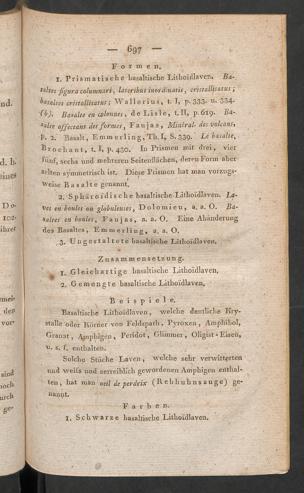 — 697 —
Formen.
1. Prismatische basaltische Lithoidlaven. Ba-
saltes figura columnari, lateribus inordinatis, cristallisatus;
basaltes cristallisatus; Wallerius, t. I, p. 333. u. 334.
(4). Basalte en colonnes, de Lisle, t. II, p. 619. Ba-
salte affectant des formes, Faujas, Minéral. des volcans,
p. 2. Basalt, Emmerling, Th. I, S. 339. Le basalte,
Brochant, t. I, p. 430. In Prismen mit drei, vier
fünf, sechs und mehreren Seitenflächen, deren Form aber
selten symmetrisch ist. Diese Prismen hat man vorzugs-
weise Basalte genannt.
2. Sphäroidische basaltische Lithoidlaven. La-
ves en boules ou globuleuses, Dolomieu, a. a. O. Ba-
saltes en boules, Faujas, a. a. O. Eine Abänderung
des Basaltes, Emmerling, a. a. O.
3. Ungestaltete basaltische Lithoidlaven.
Zusammensetzung.
1. Gleichartige basaltische Lithoidlaven.
2. Gemengte basaltische Lithoidlaven.
Beispiele.
Basaltische Lithoidlaven, welche deutliche Kry-
stalle oder Körner von Feldspath, Pyroxen, Amphibol,
Granat, Amphigen, Peridot, Glimmer, Oligist-Eisen,
u. s. f. enthalten.
Solche Stücke Laven, welche sehr verwitterten
und weiſs und zerreiblich gewordenen Amphigen enthal-
ten, hat man oeil de perdrix (Rebhuhnsauge) ge-
nannt.
Farben.
1. Schwarze basaltische Lithoidlaven.
nd.
d. h.
eines
Do-
ihrer
den
vor-
sind
noch
durch
ge-